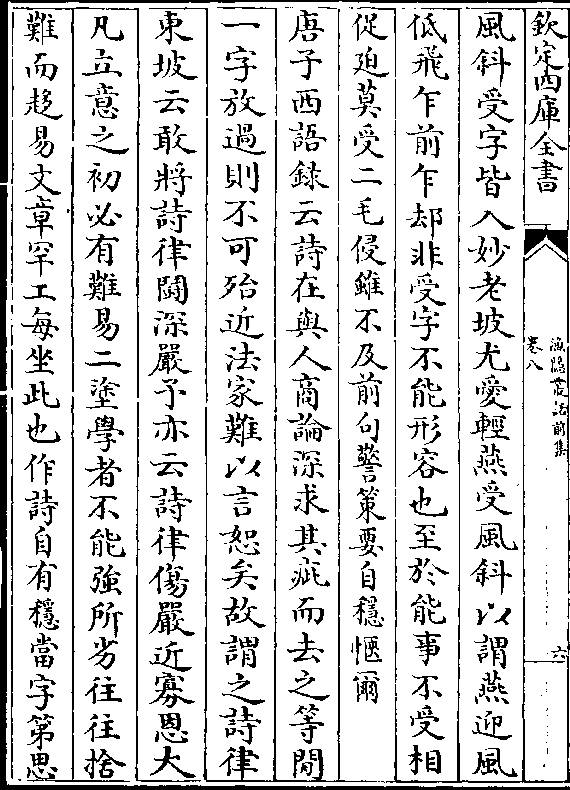 欽定四庫全書
漁隱叢話前集
卷八
六
風斜受字皆入妙老坡尤愛輕燕受風斜以謂燕迎風
低飛乍前乍却非受字不能形容也至於能事不受相
促廹莫受二毛侵雖不及前句警策要自穩愜爾
唐子西語録云詩在與人商論深求其疵而去之等閒
一字放過則不可殆近法家難以言恕矣故謂之詩律
東坡云敢將詩律鬭深嚴予亦云詩律傷嚴近寡恩大
凡立意之初必有難易二塗學者不能強所劣往往捨
難而趍易文章罕工每坐此也作詩自有穩當字第思